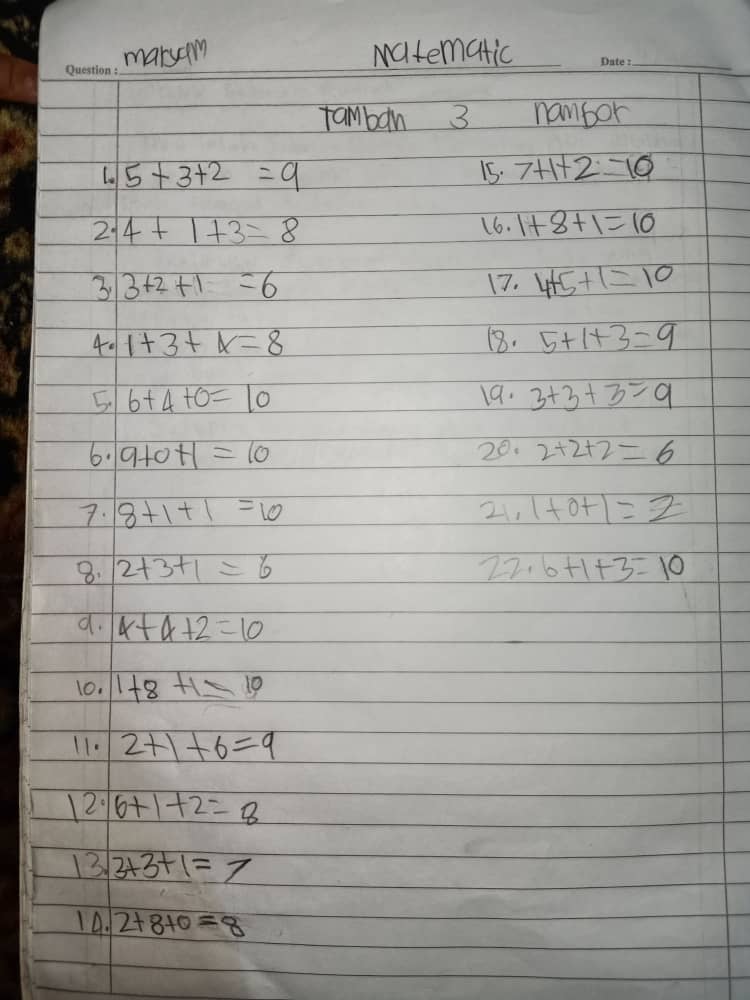 Question : maryam Matematic Date :
Tamban 3 nambor
1. 5 + 3+2 = 9
2. 4 + 1+3= 8
3. 3+2+1 = 6
4. 1+3+ 4= 8
5. 6+4+0= 10
6. 9+0+1 = 10
7. 8+1+1 = 10
8. 2+3+1 = 6
9. 4+4+2=10
10. 1+8 +1= 10
11. 2+1+6=9
12. 6+1+2= 8
13. 3+3+1= 7
14. 2+8+0=8
15. 7+1+2=10
16. 1+8+1=10
17. 4+5+1=10
18. 5+1+3=9
19. 3+3+3=9
20. 2+2+2=6
21. 1+0+1=2
22. 6+1+3=10